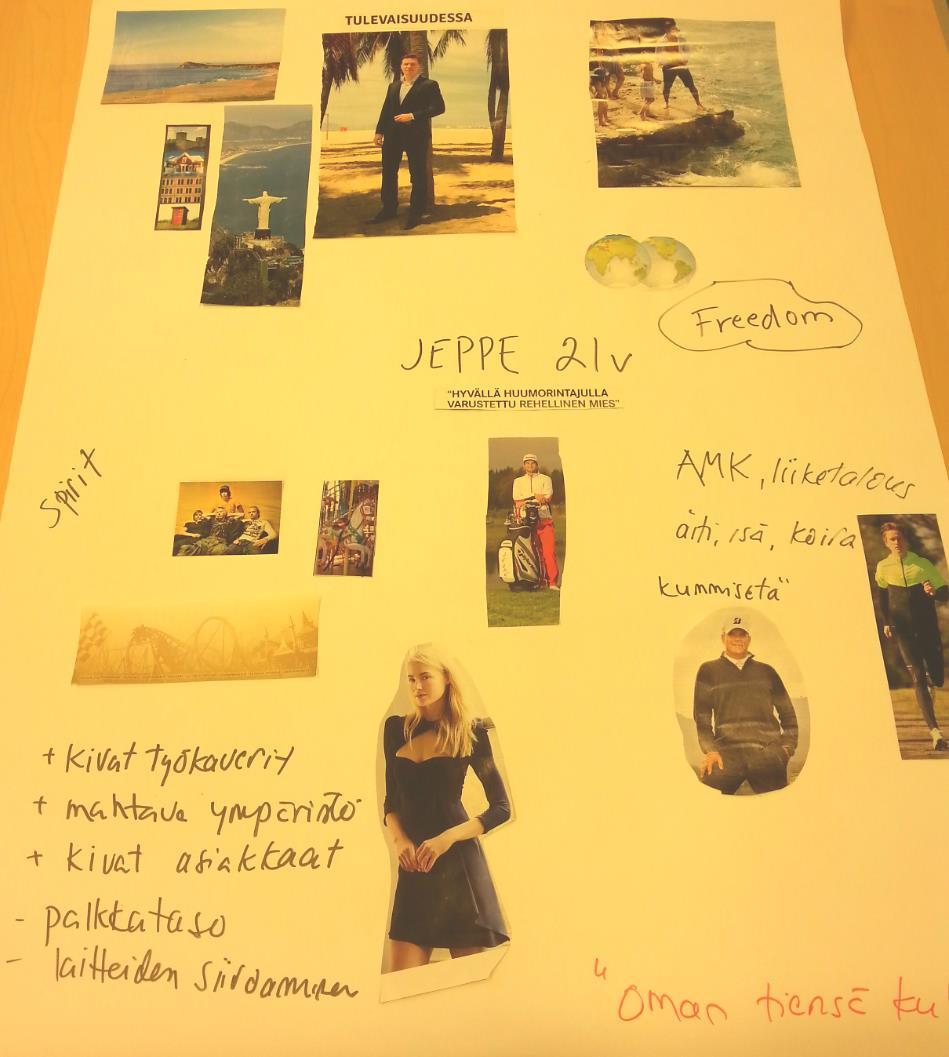 TULEVAISUUDESSA
Freedom
JEPPE 21v
"HYVÄLLÄ HUUMORINTAJULLA
VARUSTETTU REHELLINEN MIES"
Spirit
AMK, liiketalous
äiti, isä, koira
kummisetä"
+ kivat työkaverit
+ mahtava ympäristö
+ kivat asiakkaat
- palkkataso
- laitteiden siirtäminen
"Oman tiensä ku